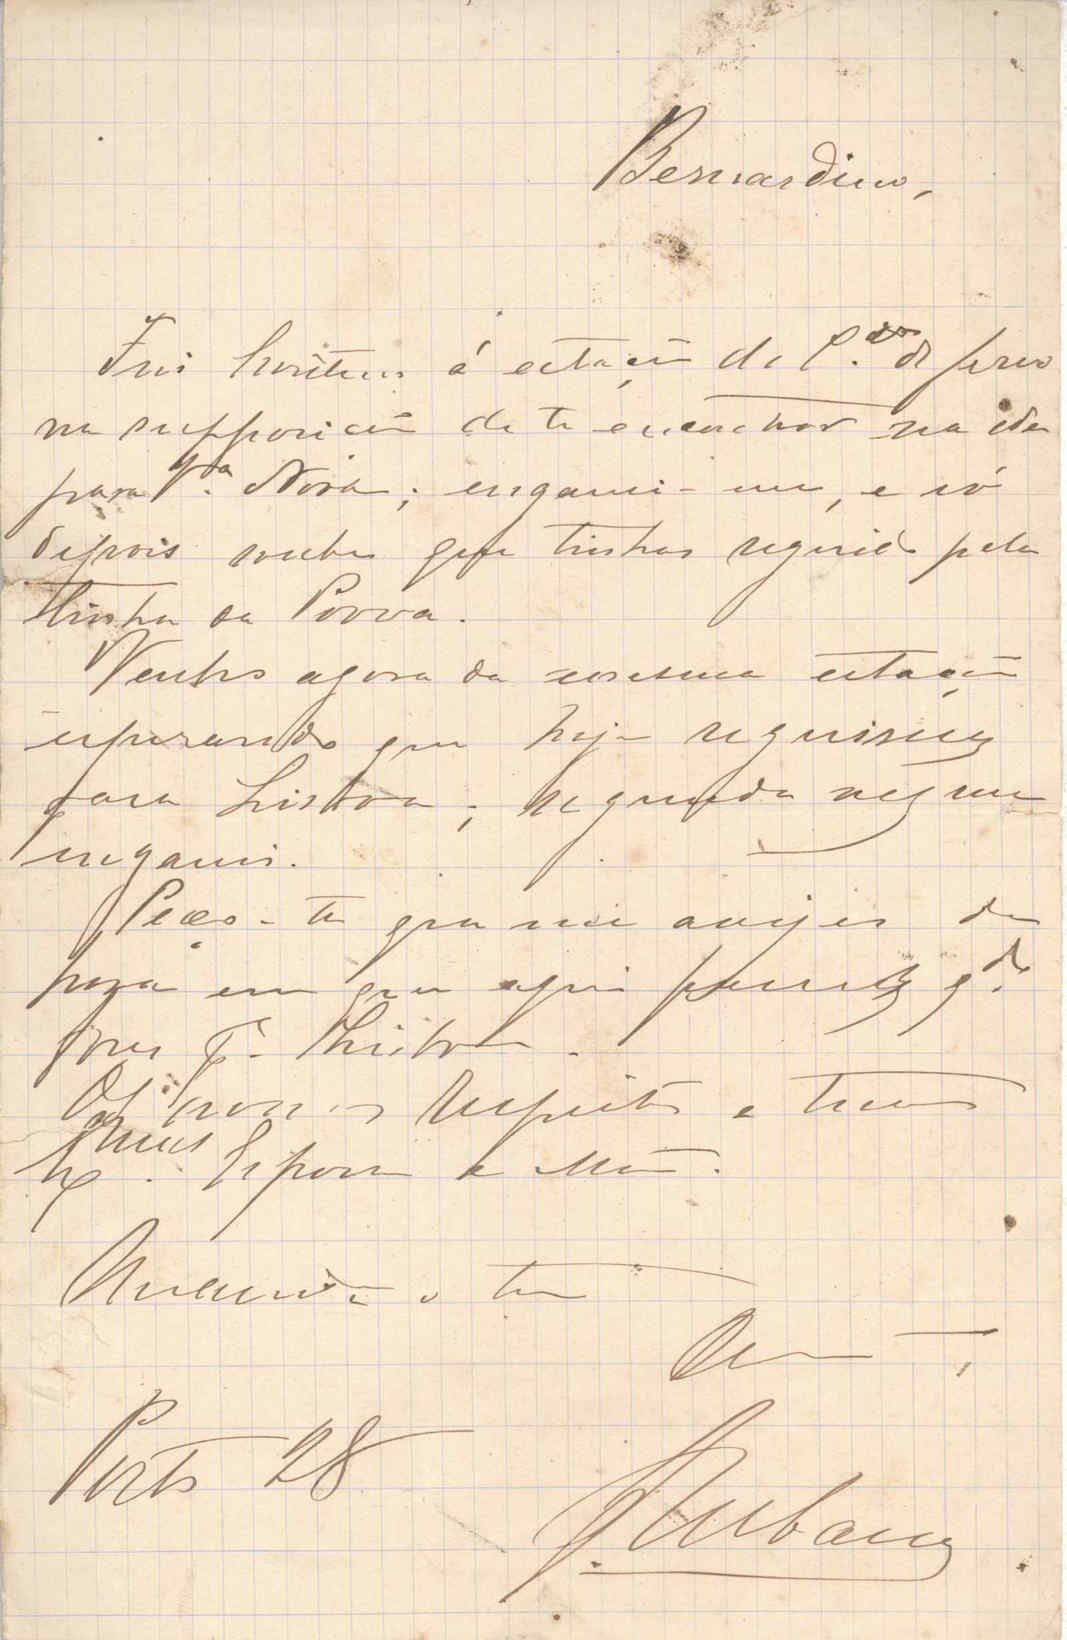 Bernardino,
Fui hontem á estação de C.os de ferro
na supposição de te encontrar na ida
para V.a Nova; enganei-me, e só
depois soube que tinhas seguido pela
linha da Povoa.
Venho agora da mesma estação
esperando que hoje seguisses
para Lisboa; segunda vez me
enganei.
Peço-te que me avizes da
hora em que aqui passas q.do
fores p.a Lisboa.
Os meus respeitos a tuas
Ex.mas Esposa e Mãe.
o teu
Porto 28
J. Urbano